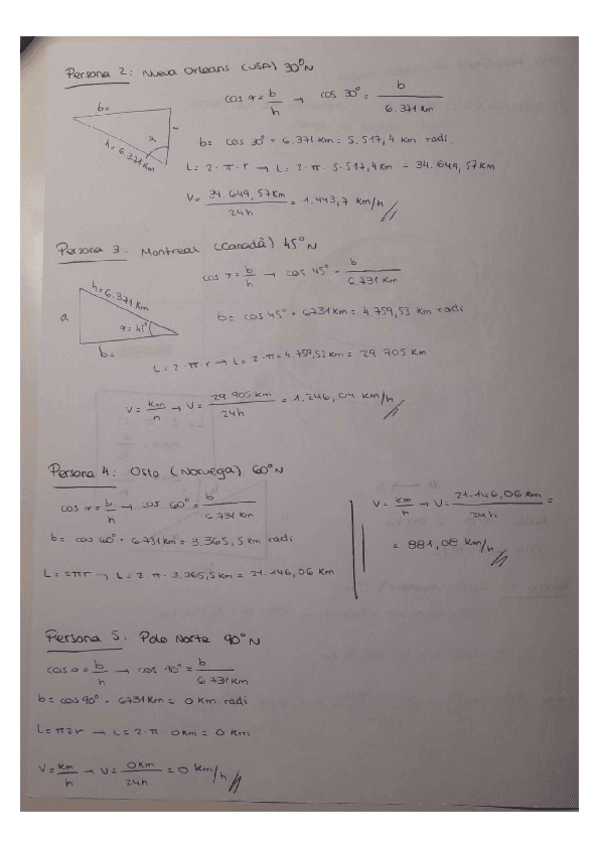 Persona 2: Nueva Orleans (USA) 30°N
b=
h=6.371 Km
a
cos α = b/h → cos 30° = b/6.371 Km
b= cos 30° · 6.371 Km = 5.517,4 Km radi.
L= 2·π·r → L= 2·π· 5.517,4 Km = 34.649,57 Km
V= 34.649,57 Km/24h = 1.443,7 Km/h //
Persona 3: Montreal (Canadà) 45°N
h=6.371 Km
a
α=45°
b=
cos α = b/h → cos 45° = b/6.731 Km
b= cos 45° · 6731 Km = 4.759,53 Km radi
L= 2·π·r → L= 2·π·4.759,53 Km = 29 905 Km
V= Km/h → V= 29.905 Km/24h = 1.246,04 Km/h //
Persona 4: Oslo (Noruega) 60°N
cos α = b/h → cos 60° = b/6.731 Km
b= cos 60° · 6.731 Km = 3.365,5 Km radi
L= 2πr → L= 2·π·3.365,5 Km = 21.146,06 Km
V= Km/h → V= 21.146,06 Km/24h =
= 881,08 Km/h //
Persona 5: Polo Norte 90°N
cos α = b/h → cos 90° = b/6.731 Km
b= cos 90° · 6731 Km = 0 Km radi
L= π2r → L= 2·π· 0 Km = 0 Km
V= Km/h → V= 0 Km/24h = 0 Km/h //